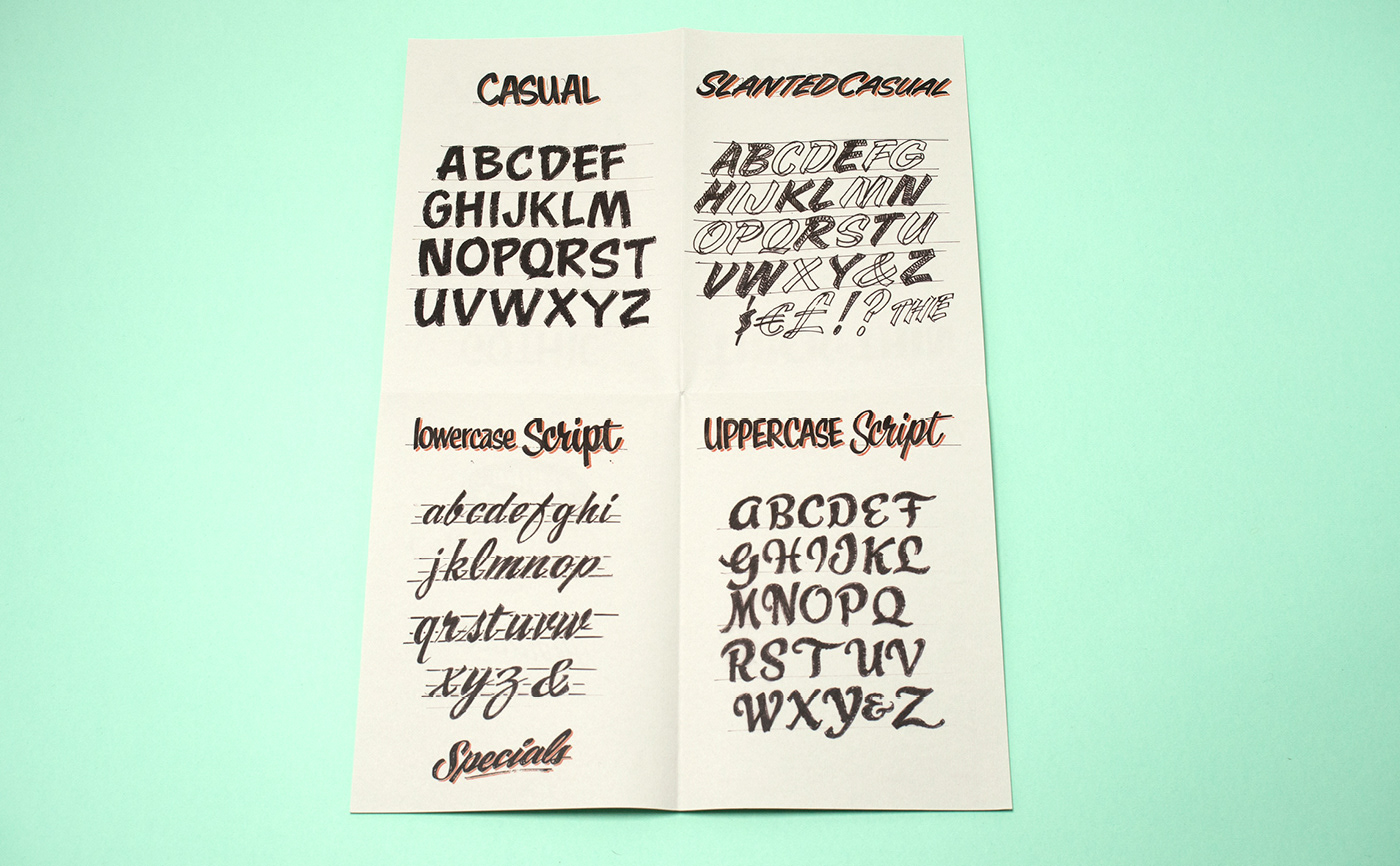 CASUAL
ABCDEF
GHIJKLM
NOPQRST
UVWXYZ
SLANTED CASUAL
ABCDEFG
HIJKLMN
OPQRSTU
VWXY&Z
$€£!? THE
lowercase Script
abcdefghi
jklmnop
qrstuvw
xyz &
Specials
UPPERCASE Script
ABCDEF
GHIJKL
MNOPQ
RSTUV
WXY&Z